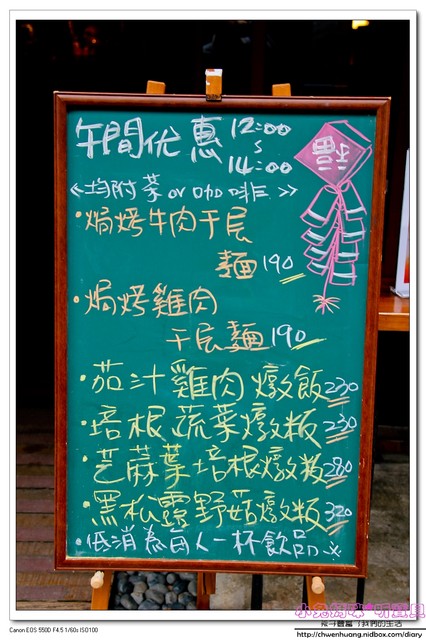 午間优惠 12:00
~
14:00
<均附茶 or 咖啡>>
·焗烤牛肉千层
麵 190
·焗烤雞肉
千层麵 190
·茄汁雞肉燉飯 230
·培根蔬菜燉飯 230
·芝蔴葉培根燉飯 280
·黑松露野菇燉飯 320
·低消為每人一杯飲品
福
Canon EOS 550D F4.5 1/60s ISO100
http://chwenhuang.nidbox.com/diary